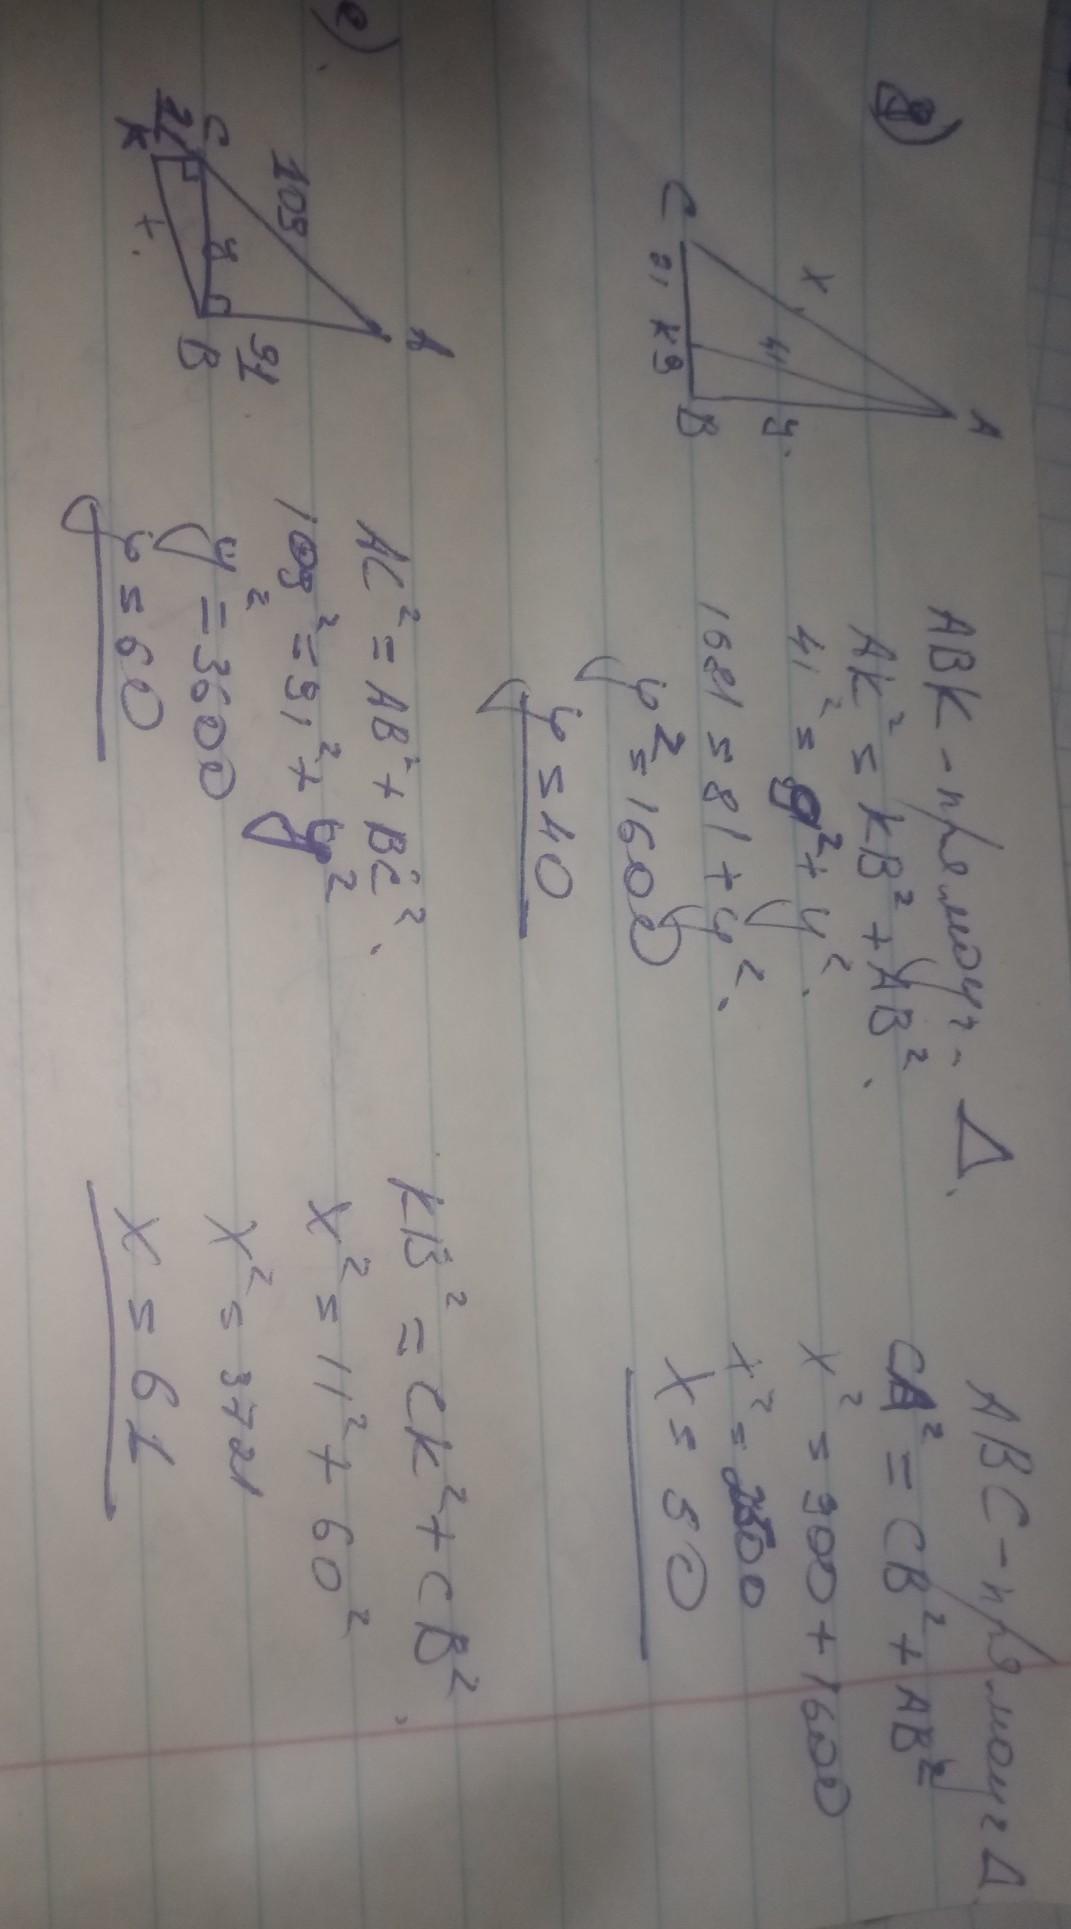 д)
A
x
41
y.
C
21
K
9
B
ABK - прямоуг. Δ.
AK² = KB² + AB².
41² = 9² + y².
1681 = 81 + y².
y² = 1600
y = 40
ABC - прямоуг Δ
CA² = CB² + AB²
x² = 900 + 1600
x² = 2500
x = 50
е)
A
109
91
C
y
B
K
x.
AC² = AB² + BC².
109² = 91² + y²
y² = 3600
y = 60
KB² = CK² + CB².
x² = 11² + 60²
x² = 3721
x = 61